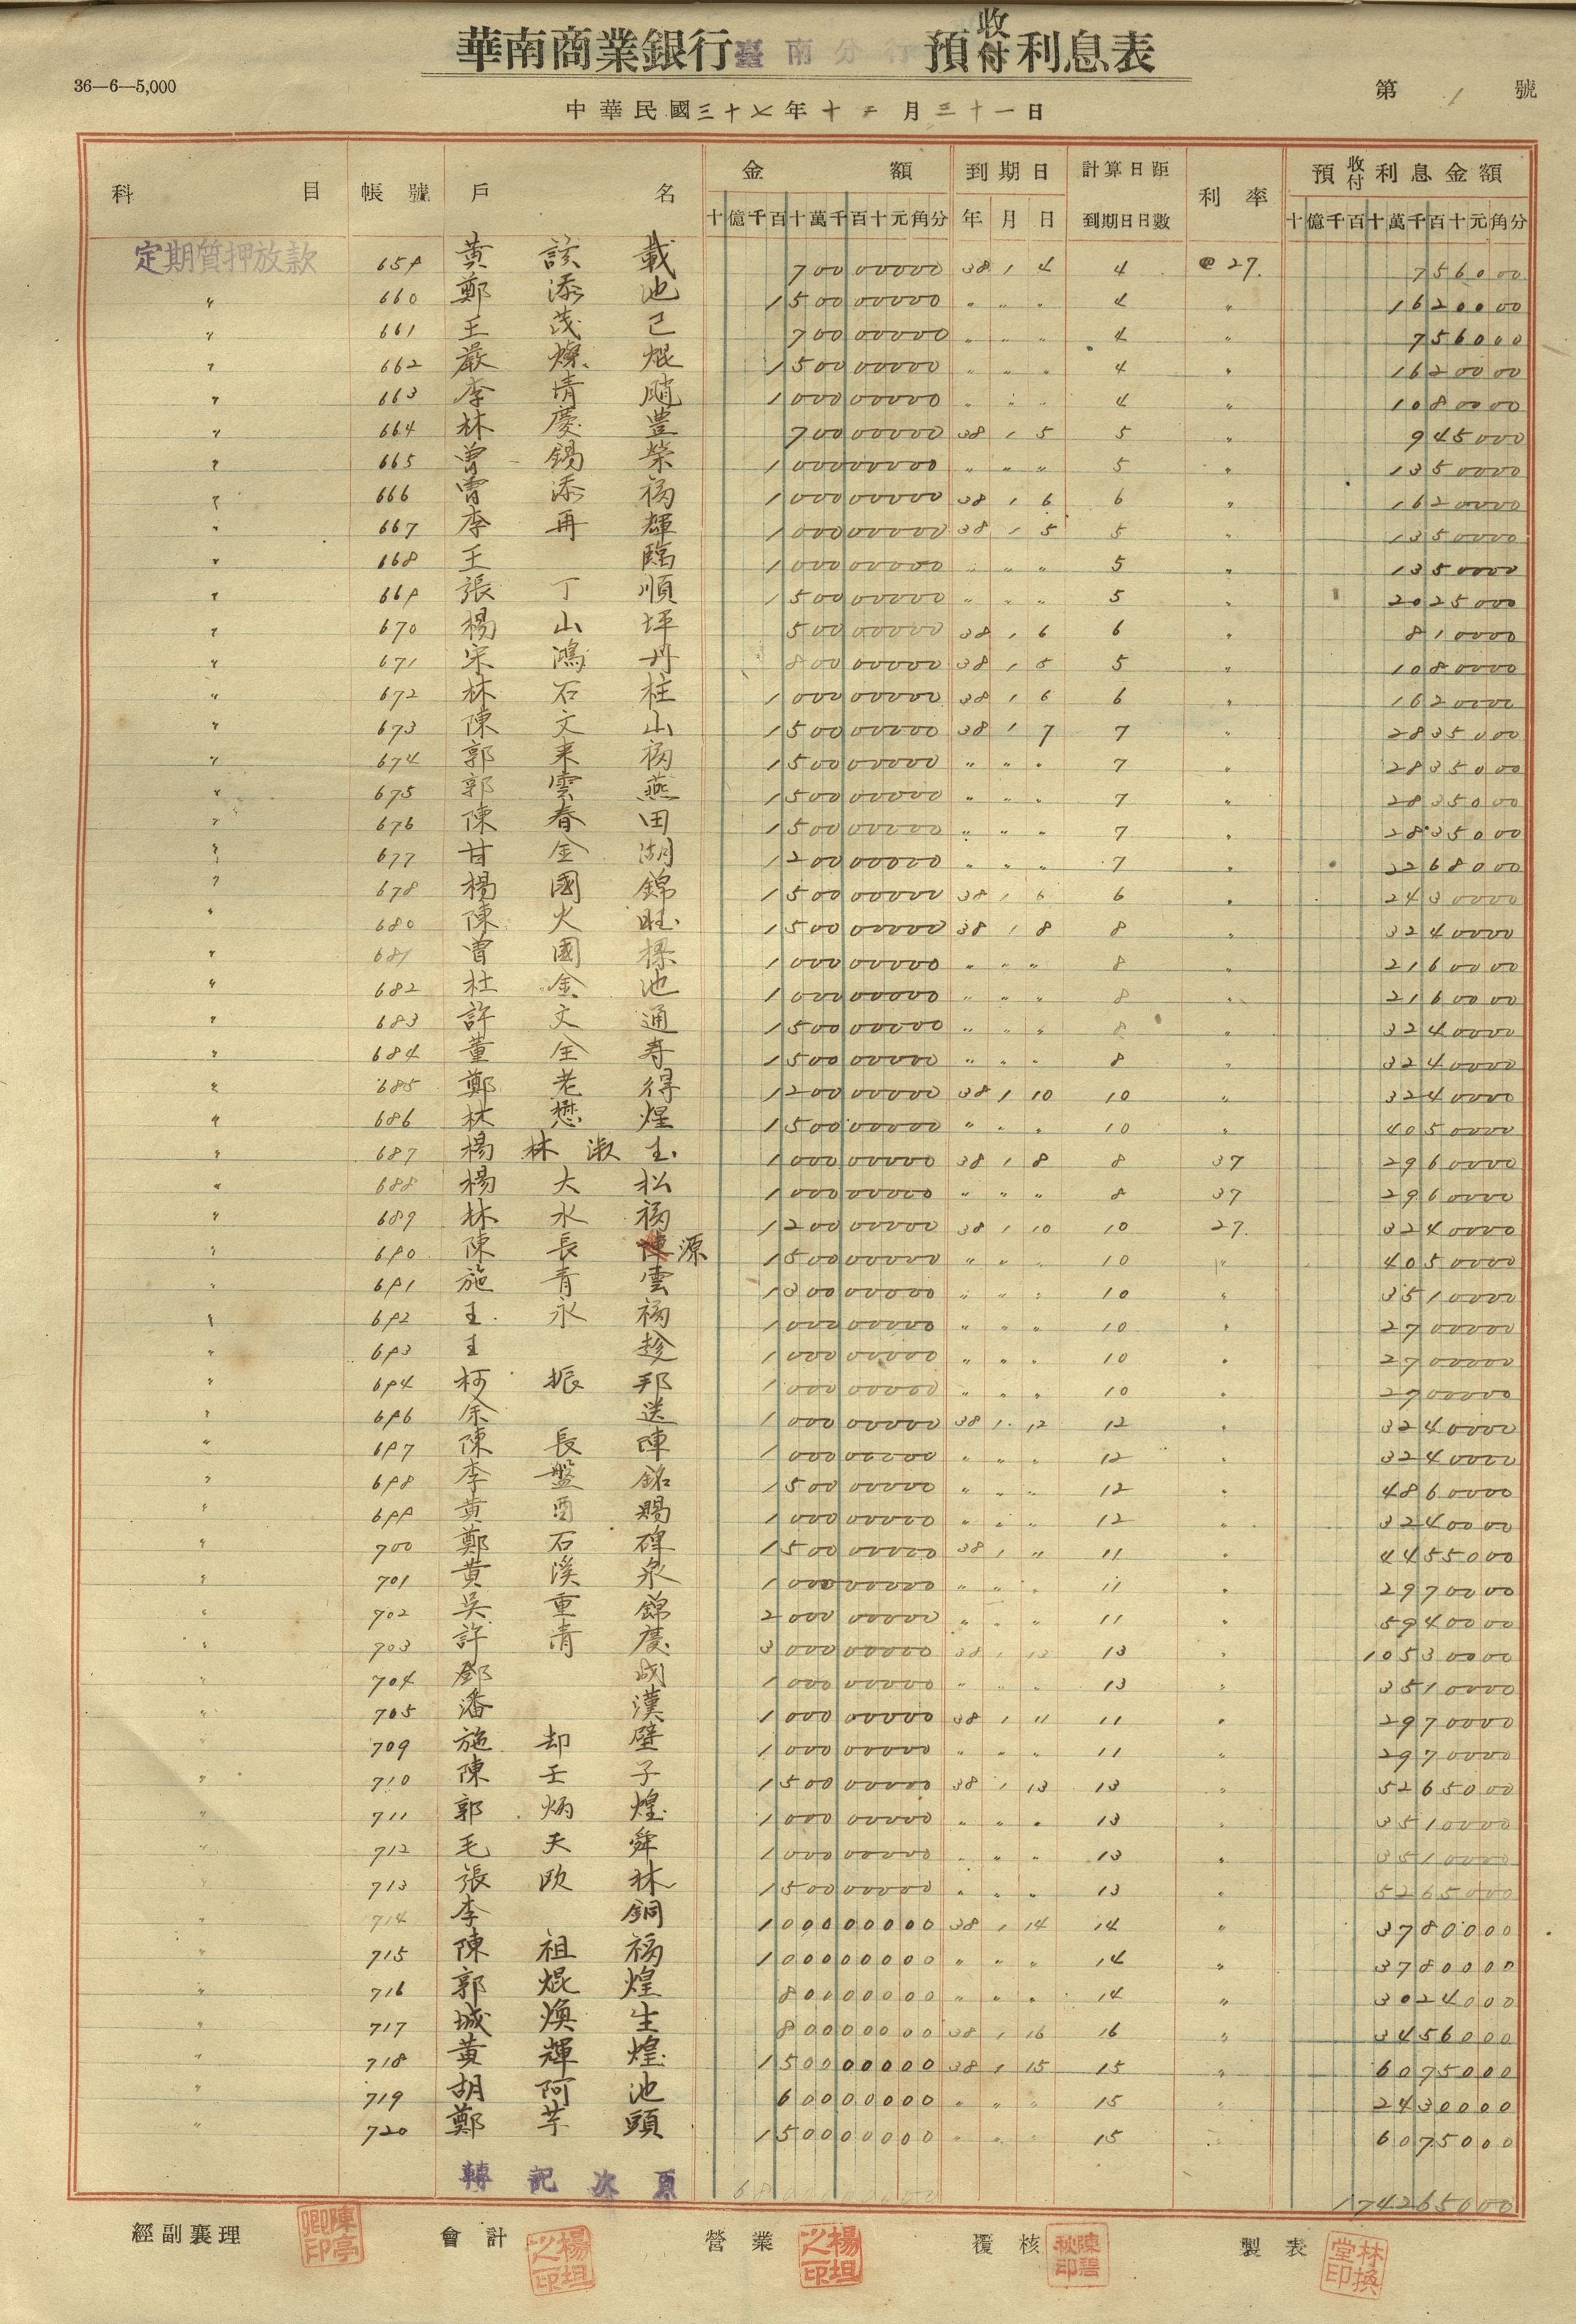 華南商業銀行臺南分行 預收付利息表
36—6—5,000
第 1 號
中華民國三十七年十二月三十一日
科目 帳號 戶名 金額 到期日 計算日距到期日日數 利率 預收付利息金額
十億千百十萬千百十元角分 年 月 日 十億千百十萬千百十元角分
定期質押放款 659 黃該載 700 00000 38 1 4 4 @27. 756000
〃 660 鄭添池 1500 00000 〃 〃 〃 4 〃 1620000
〃 661 王茂己 700 00000 〃 〃 〃 4 〃 756000
〃 662 嚴燦焜 1500 00000 〃 〃 〃 4 〃 1620000
〃 663 李清 1000 00000 〃 〃 〃 4 〃 1080000
〃 664 林慶豊 700 00000 38 1 5 5 〃 945000
〃 665 曾錫榮 1000 00000 〃 〃 〃 5 〃 1350000
〃 666 曾添福 1000 00000 38 1 6 6 〃 1620000
〃 667 李再輝 1000 00000 38 1 5 5 〃 1350000
〃 668 王臨 1000 00000 〃 〃 〃 5 〃 1350000
〃 669 張丁順 1500 00000 〃 〃 〃 5 〃 2025000
〃 670 楊山坪 500 00000 38 1 6 6 〃 810000
〃 671 宋鴻丹 800 00000 38 1 5 5 〃 1080000
〃 672 林石柱 1000 00000 38 1 6 6 〃 1620000
〃 673 陳文山 1500 00000 38 1 7 7 〃 2835000
〃 674 郭来福 1500 00000 〃 〃 〃 7 〃 2835000
〃 675 郭雲燕 1500 00000 〃 〃 〃 7 〃 2835000
〃 676 陳春田 1500 00000 〃 〃 〃 7 〃 2835000
〃 677 甘金湖 1200 00000 〃 〃 〃 7 〃 2268000
〃 678 楊國錦 1500 00000 38 1 6 6 〃 2430000
〃 680 陳火旺 1500 00000 38 1 8 8 〃 3240000
〃 681 曾國樑 1000 00000 〃 〃 〃 8 〃 2160000
〃 682 杜金池 1000 00000 〃 〃 〃 8 〃 2160000
〃 683 許文通 1500 00000 〃 〃 〃 8 〃 3240000
〃 684 董全寿 1500 00000 〃 〃 〃 8 〃 3240000
〃 685 鄭老得 1200 00000 38 1 10 10 〃 3240000
〃 686 林懋煌 1500 00000 〃 〃 〃 10 〃 4050000
〃 687 楊林淑玉 1000 00000 38 1 8 8 37 2960000
〃 688 楊大松 1000 00000 〃 〃 〃 8 37 2960000
〃 689 林水福 1200 00000 38 1 10 10 27. 3240000
〃 690 陳長源 1500 00000 〃 〃 〃 10 〃 4050000
〃 691 施青雲 1300 00000 〃 〃 〃 10 〃 3510000
〃 692 王永福 1000 00000 〃 〃 〃 10 〃 2700000
〃 693 王趁 1000 00000 〃 〃 〃 10 〃 2700000
〃 694 柯振邦 1000 00000 〃 〃 〃 10 〃 2700000
〃 696 余送 1000 00000 38 1 12 12 〃 3240000
〃 697 陳長陣 1000 00000 〃 〃 〃 12 〃 3240000
〃 698 李盤銘 1500 00000 〃 〃 〃 12 〃 4860000
〃 699 黃酉賜 1000 00000 〃 〃 〃 12 〃 3240000
〃 700 鄭石碑 1500 00000 38 1 11 11 〃 4455000
〃 701 黃溪泉 1000 00000 〃 〃 〃 11 〃 2970000
〃 702 吳重錦 2000 00000 〃 〃 〃 11 〃 5940000
〃 703 許清慶 3000 00000 38 1 13 13 〃 10530000
〃 704 鄧成 1000 00000 〃 〃 〃 13 〃 3510000
〃 705 潘漢 1000 00000 38 1 11 11 〃 2970000
〃 709 施却壁 1000 00000 〃 〃 〃 11 〃 2970000
〃 710 陳壬子 1500 00000 38 1 13 13 〃 5265000
〃 711 郭炳煌 1000 00000 〃 〃 〃 13 〃 3510000
〃 712 毛天舜 1000 00000 〃 〃 〃 13 〃 3510000
〃 713 張欧林 1500 00000 〃 〃 〃 13 〃 5265000
〃 714 李銅 1000 00000 38 1 14 14 〃 3780000
〃 715 陳祖福 1000 00000 〃 〃 〃 14 〃 3780000
〃 716 郭焜煌 800 00000 〃 〃 〃 14 〃 3024000
〃 717 城煥生 800 00000 38 1 16 16 〃 3456000
〃 718 黃輝煌 1500 00000 38 1 15 15 〃 6075000
〃 719 胡阿池 600 00000 〃 〃 〃 15 〃 2430000
〃 720 鄭芋頭 1500 00000 〃 〃 〃 15 〃 6075000
轉記次頁 174265000
經副襄理 陳亭卿印 會計 楊坦之印 營業 楊坦之印 覆核 陳碧秋印 製表 林換堂印